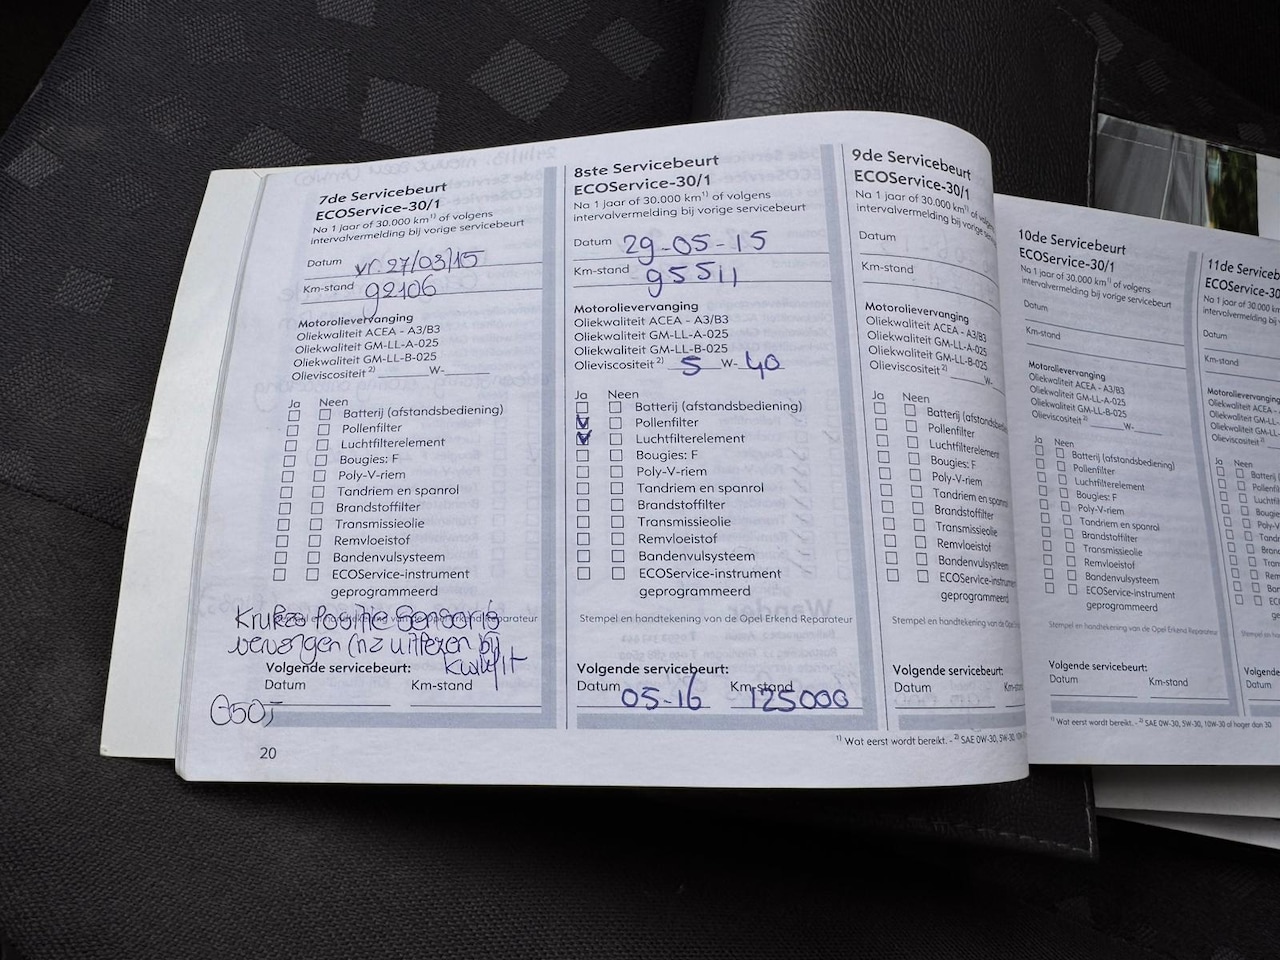 7de Servicebeurt
ECOService-30/1
Na 1 jaar of 30.000 km¹⁾ of volgens
intervalvermelding bij vorige servicebeurt
Datum vr. 27/03/15
Km-stand 92106
Motorolievervanging
Oliekwaliteit ACEA - A3/B3
Oliekwaliteit GM-LL-A-025
Oliekwaliteit GM-LL-B-025
Olieviscositeit ²⁾ ______ W-______
Ja Neen
Batterij (afstandsbediening)
Pollenfilter
Luchtfilterelement
Bougies: F
Poly-V-riem
Tandriem en spanrol
Brandstoffilter
Transmissieolie
Remvloeistof
Bandenvulsysteem
ECOService-instrument
geprogrammeerd
Positie Sensor
Stempel en handtekening van de Opel Erkend Reparateur
uitlezen bij
kwikfit
Volgende servicebeurt:
Datum Km-stand
20
8ste Servicebeurt
ECOService-30/1
Na 1 jaar of 30.000 km¹⁾ of volgens
intervalvermelding bij vorige servicebeurt
Datum 29-05-15
Km-stand 95511
Motorolievervanging
Oliekwaliteit ACEA - A3/B3
Oliekwaliteit GM-LL-A-025
Oliekwaliteit GM-LL-B-025
Olieviscositeit ²⁾ 5 W- 40
Ja Neen
Batterij (afstandsbediening)
Pollenfilter
Luchtfilterelement
Bougies: F
Poly-V-riem
Tandriem en spanrol
Brandstoffilter
Transmissieolie
Remvloeistof
Bandenvulsysteem
ECOService-instrument
geprogrammeerd
Stempel en handtekening van de Opel Erkend Reparateur
Volgende servicebeurt:
Datum 05-16 Km-stand 125000
9de Servicebeurt
ECOService-30/1
Na 1 jaar of 30.000 km¹⁾ of volgens
intervalvermelding bij vorige servicebeurt
Datum
Km-stand
Motorolievervanging
Oliekwaliteit ACEA - A3/B3
Oliekwaliteit GM-LL-A-025
Oliekwaliteit GM-LL-B-025
Olieviscositeit ²⁾ ______ W-
Ja Neen
Batterij (afstandsbedie
Pollenfilter
Luchtfilterelement
Bougies: F
Poly-V-riem
Tandriem en spanrol
Brandstoffilter
Transmissieolie
Remvloeistof
Bandenvulsysteem
ECOService-instrum
geprogrammeerd
Stempel en handtekening van de Opel
Volgende servicebeurt:
Datum Km-s
¹⁾ Wat eerst wordt bereikt. - ²⁾ SAE 0W-30, 5W-30, 10W-
10de Servicebeurt
ECOService-30/1
Na 1 jaar of 30.000 km¹⁾ of volgens
intervalvermelding bij vorige servicebeurt
Datum
Km-stand
Motorolievervanging
Oliekwaliteit ACEA - A3/B3
Oliekwaliteit GM-LL-A-025
Oliekwaliteit GM-LL-B-025
Olieviscositeit ²⁾ ______ W-______
Ja Neen
Batterij (afstandsbediening)
Pollenfilter
Luchtfilterelement
Bougies: F
Poly-V-riem
Tandriem en spanrol
Brandstoffilter
Transmissieolie
Remvloeistof
Bandenvulsysteem
ECOService-instrument
geprogrammeerd
Stempel en handtekening van de Opel Erkend Reparateur
Volgende servicebeurt:
Datum Km-stand
¹⁾ Wat eerst wordt bereikt. - ²⁾ SAE 0W-30, 5W-30, 10W-30 of hoger dan 30
11de Serviceb
ECOService-30
Na 1 jaar of 30.000
intervalvermelding
Datum
Km-stand
Motorolievervanging
Oliekwaliteit ACEA -
Oliekwaliteit GM-LL-
Oliekwaliteit GM-LL-
Olieviscositeit ²⁾
Ja Neen
Batterij (
Pollenfil
Luchtfil
Bougie
Poly-V
Tandr
Bran
Tran
Rem
Ban
ECO
Stempel en han
Volgende serv
Datum